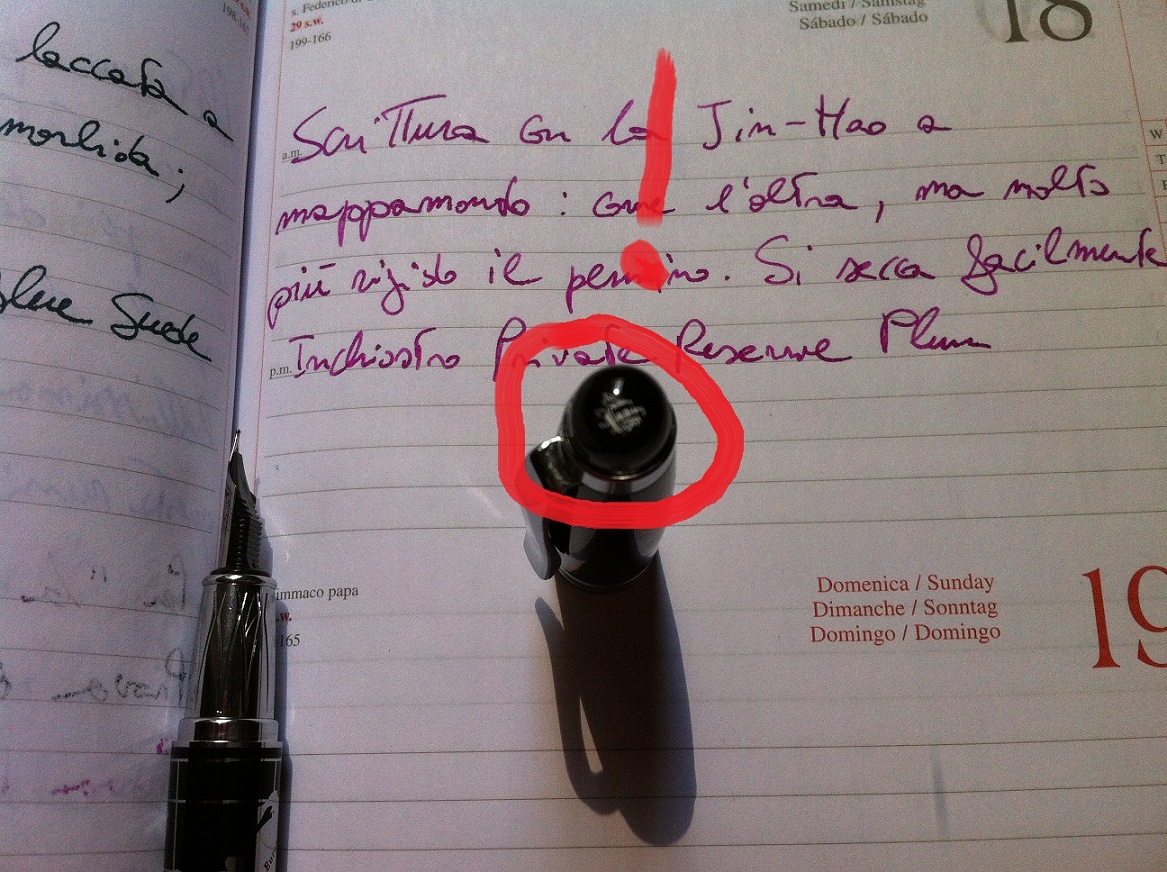 laccata a
morbida;
Blue Suede
s. Federico di
29 s.w.
199-166
Samedi / Samstag
Sábado / Sábado
18
a.m.
Scrittura con la Jin-Hao a
mappamondo: come l'altra, ma molto
più rigido il pennino. Si secca facilmente
p.m.
Inchiostro Private Reserve Plum
immaco papa
.w.
165
Domenica / Sunday
Dimanche / Sonntag
Domingo / Domingo
19
W
T
F
Prova